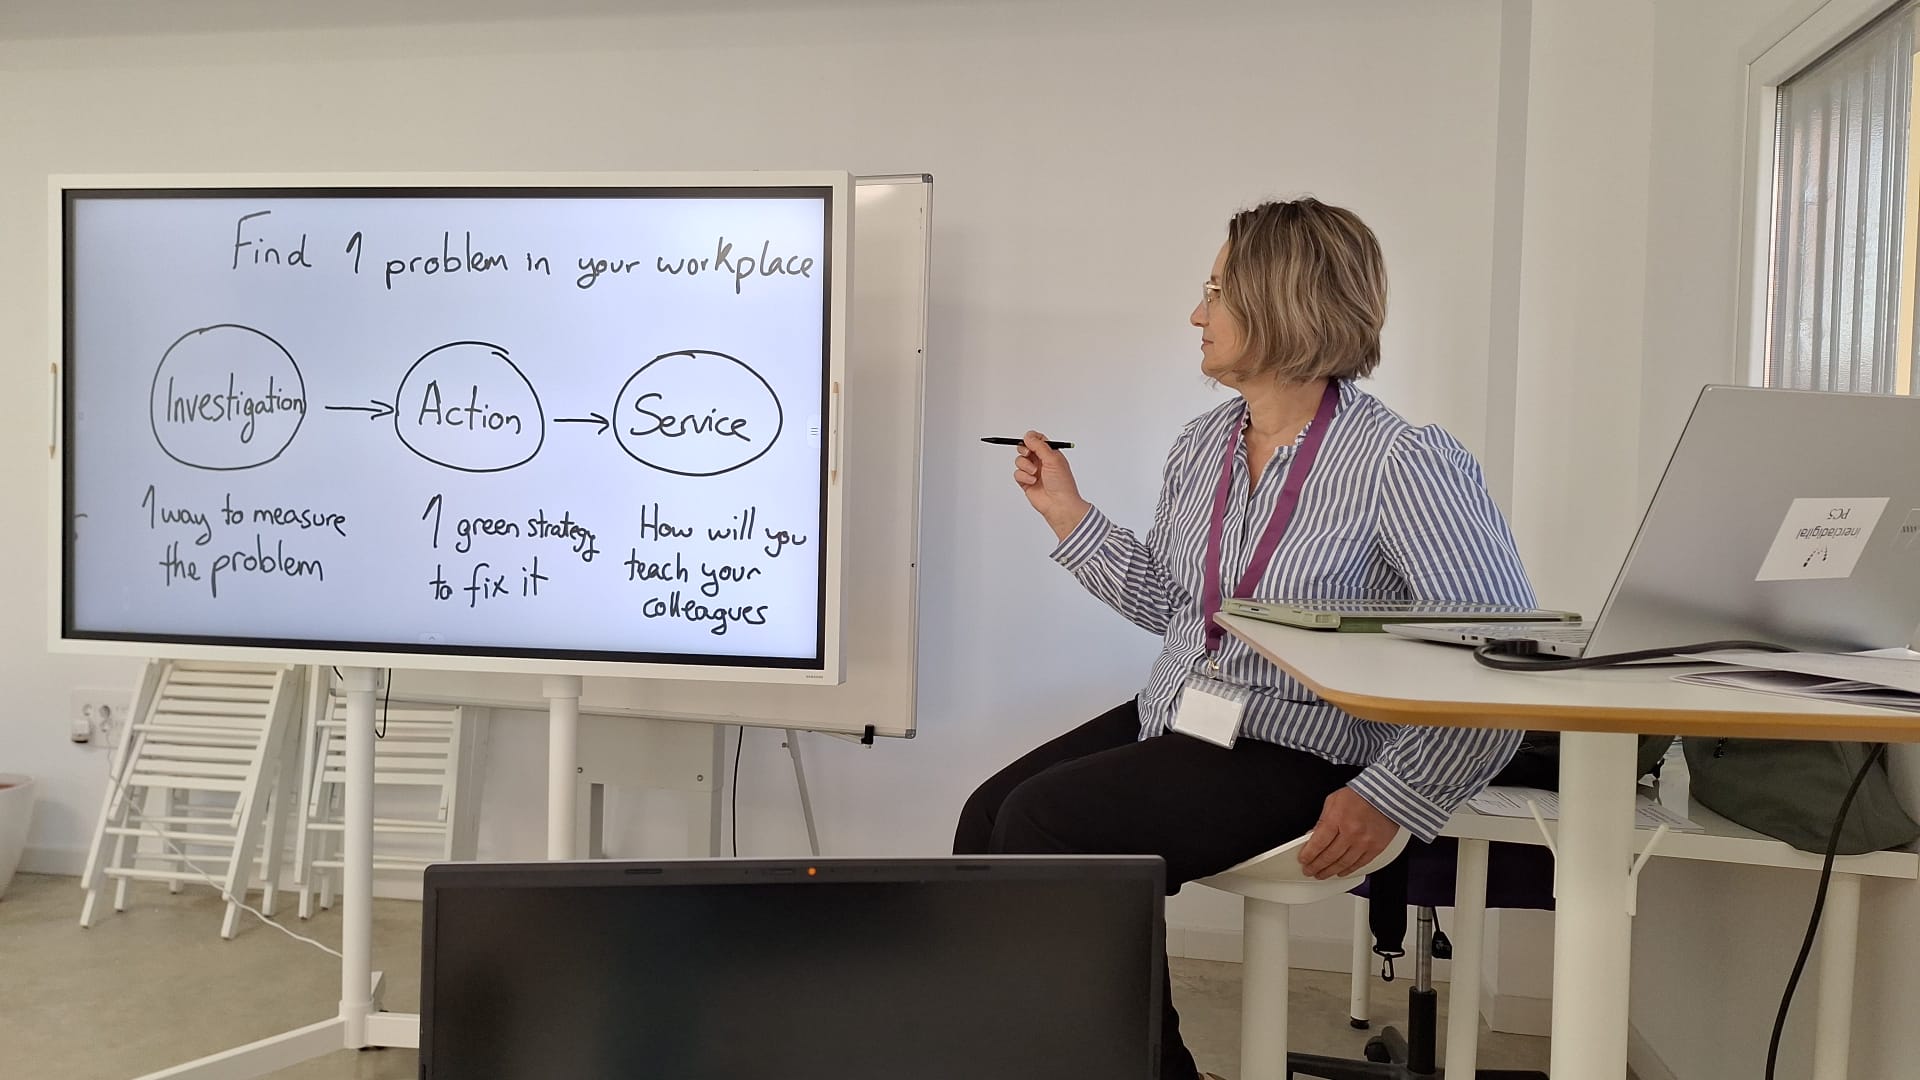 Find 1 problem in your workplace
Investigation
Action
Service
1 way to measure
the problem
1 green strategy
to fix it
How will you
teach your
colleagues
SAMSUNG
inerciadigital
PC5